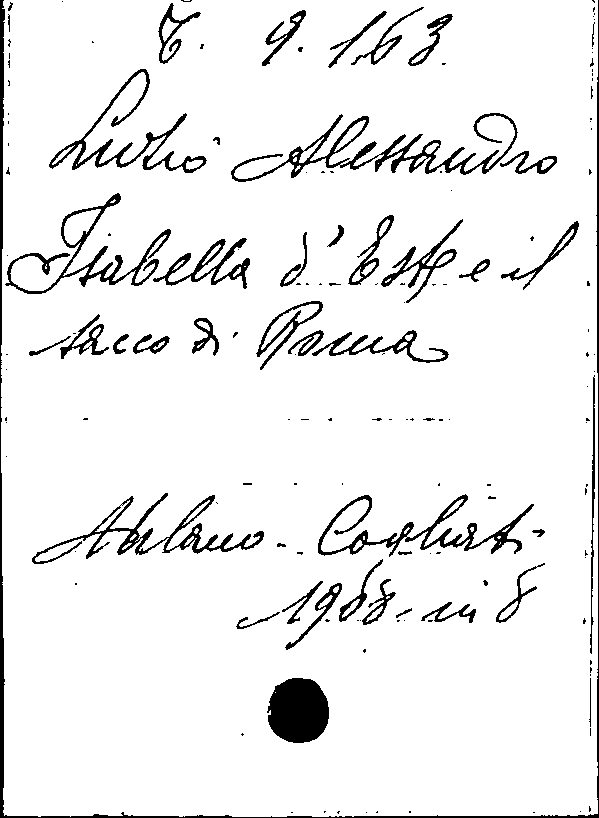 T. 9. 163
Luzio Alessandro
Isabella d'Este e il
sacco di Roma
Milano - Cogliati -
1908 - in 8